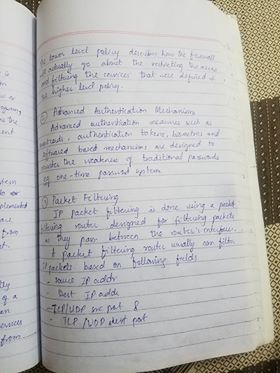 The lower level policy describes how the firewall
will actually go about the restricting the access
and filtering the services that were defined in
the higher level policy.
② Advanced Authentication Mechanisms
Advanced authentication measures such as
smartcards, authentication tokens, biometrics and
software based mechanisms are designed to
counter the weakness of traditional passwords
one-time password system
③ Packet Filtering
IP packet filtering is done using a packet
filtering router designed for filtering packets
as they pass between the router's interface.
A packet filtering router usually can filter
IP packets based on following fields
- source IP addr
- Dest IP addr
- TCP/UDP src port &
- TCP/UDP dest port